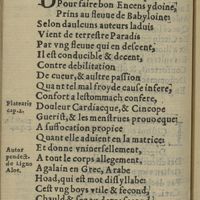 Pour faire bon Encens ydoine,
Prins au fleuue de Babyloine:
Selon daulcuns auteurs la duis
Vient de terrestre Paradis
Par vng fleuue qui en descent,
Il est conducible & decent,
Contre debilitation
De cueur, & aultre passion
Quant tel mal froyde cause infere,
Confort a lestommach confere,
Platearius cap.2.
Douleur Cardiacque, & Cincope
Guerist, & les menstrues prouocque:
A suffocation propice
Quant elle aduient en la matrice:
Autor pandect. de Ligno Aloe.
Et donne vniuersellement,
A tout le corps allegement,
Agalain en Grec, Arabe
Hoad, qui est mot dissyllabe:
Cest vng boys vtile & fecond,
Chauld &